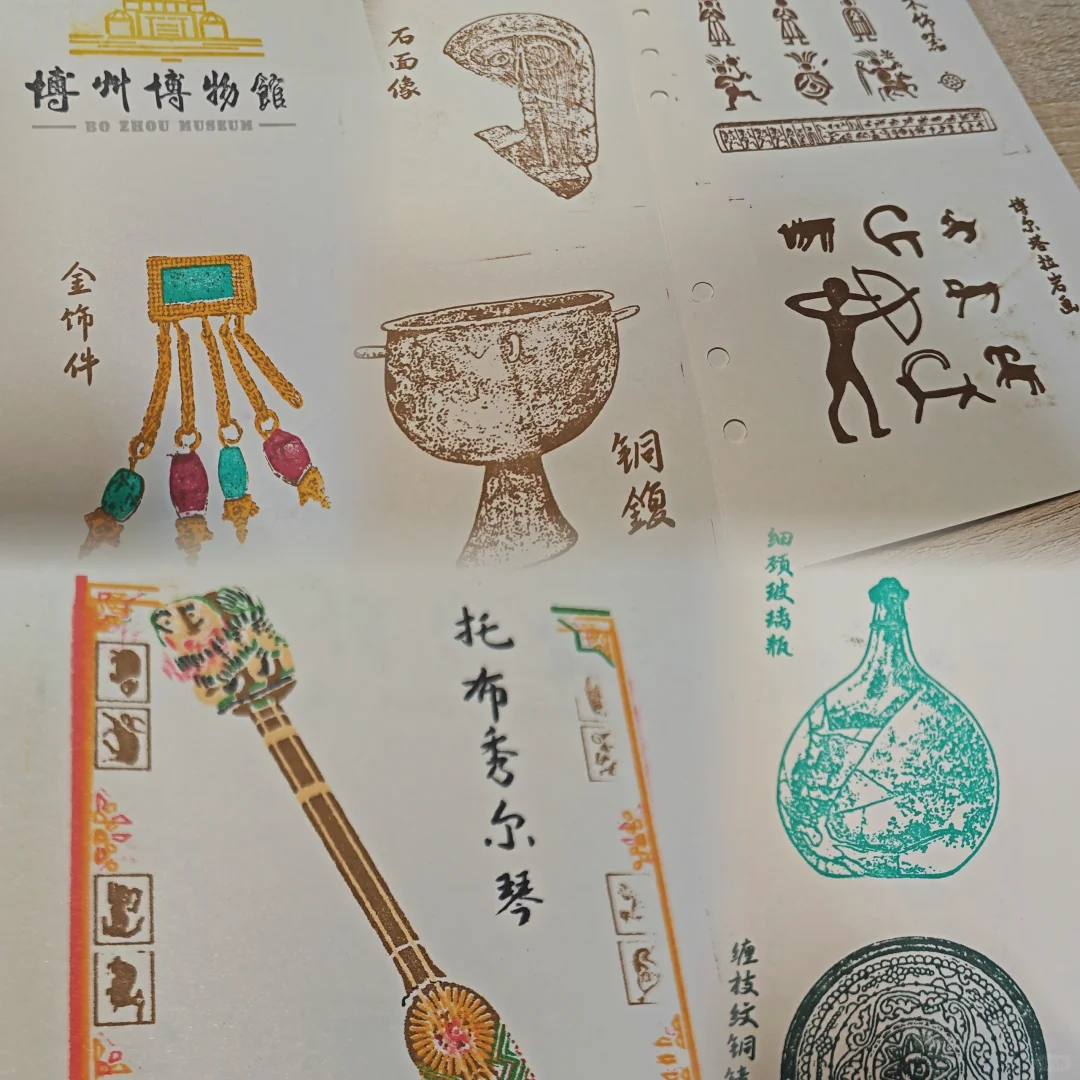 博州博物館
BO ZHOU MUSEUM
石面像
木饰
金饰件
铜鍑
博尔塔拉岩画
托布秀尔琴
细颈玻璃瓶
缠枝纹铜镜